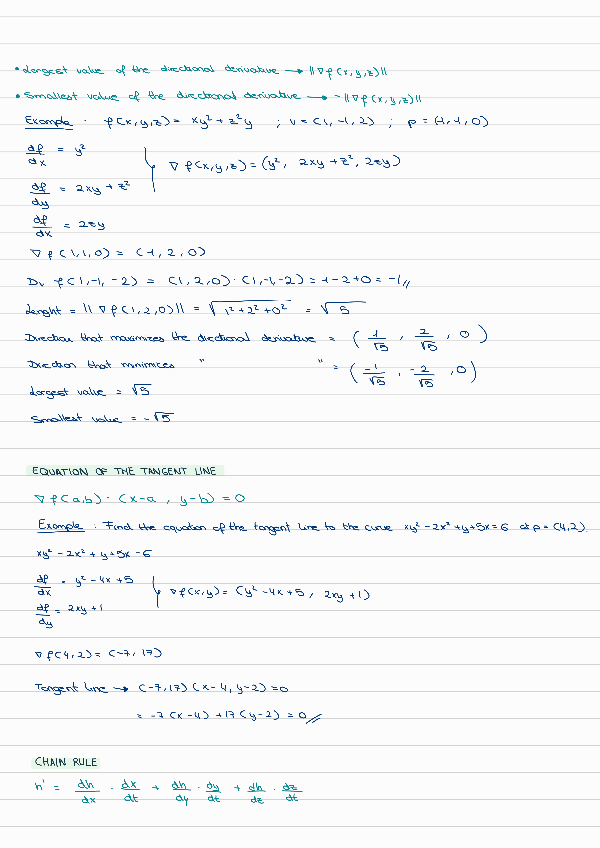 • Largest value of the directional derivative → ||∇f(x,y,z)||
• Smallest value of the directional derivative → -||∇f(x,y,z)||
Example. f(x,y,z) = xy² + z²y ; v = (1, -1, 2) ; p = (1, 1, 0)
df/dx = y²
df/dy = 2xy + z²
∇f(x,y,z) = (y², 2xy + z², 2zy)
df/dx = 2zy
∇f(1,1,0) = (1, 2, 0)
Dv f(1,-1,-2) = (1,2,0)·(1,-1,-2) = 1-2+0 = -1//
Lenght = ||∇f(1,2,0)|| = √1²+2²+0² = √5
Direction that maximizes the directional derivative = (1/√5, 2/√5, 0)
Direction that minimices " " = (-1/√5, -2/√5, 0)
Largest value = √5
Smallest value = -√5
EQUATION OF THE TANGENT LINE
∇f(a,b)·(x-a, y-b) = 0
Example: Find the equation of the tangent line to the curve xy² - 2x² + y + 5x = 6 at p = (4,2).
xy² - 2x² + y + 5x - 6
df/dx = y² - 4x + 5
∇f(x,y) = (y² - 4x + 5, 2xy + 1)
df/dy = 2xy + 1
∇f(4,2) = (-7, 17)
Tangent line → (-7,17)(x-4, y-2) = 0
= -7(x-4) + 17(y-2) = 0//
CHAIN RULE
h' = dh/dx · dx/dt + dh/dy · dy/dt + dh/dz · dz/dt